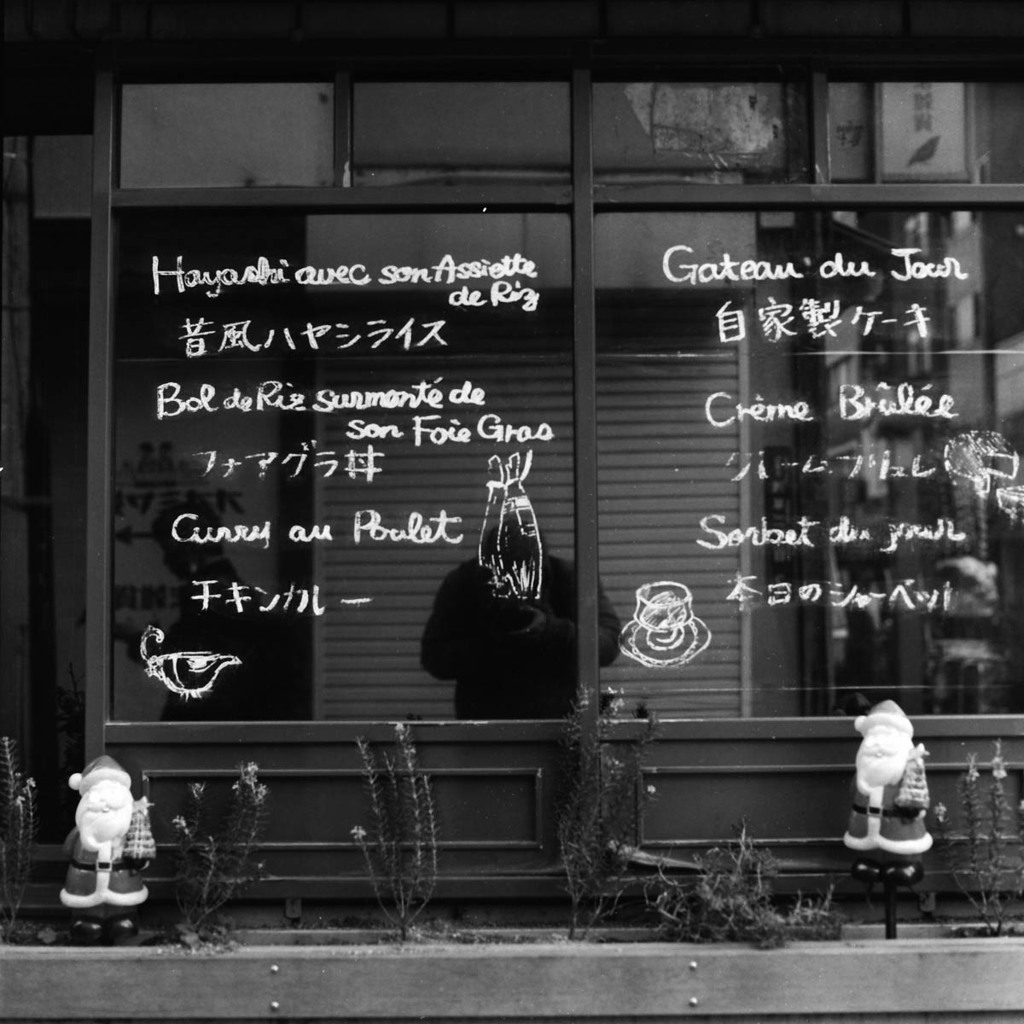 Hayashi avec son Assiette
de Riz
昔風ハヤシライス
Bol de Riz surmonté de
son Foie Gras
フォアグラ丼
Curry au Poulet
チキンカレー
Gateau du Jour
自家製ケーキ
Crème Brûlée
クレームブリュレ
Sorbet du jour
本日のシャーベット